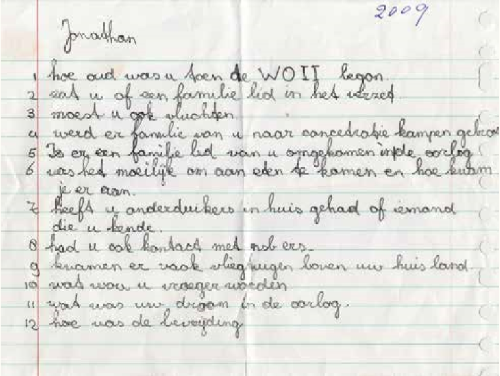 2009
Jonathan
1 hoe oud was u toen de WOII begon.
2 zat u of een familie lid in het verzet
3 moest u ook vluchten
4 werd er familie van u naar concedratie kampen
5 Is er een familie lid van u omgekomen in de oorlog
6 was het moeilijk om aan eten te komen en hoe kwam
je er aan.
7 heeft u onderduikers in huis gehad of iemand
die u kende.
8 had u ook kontact met nsb ers.
9 kwamen er vaak vliegtuigen boven uw huis land.
10 wat wou u vroeger worden
11 wat was uw droom in de oorlog.
12 hoe was de bevrijding